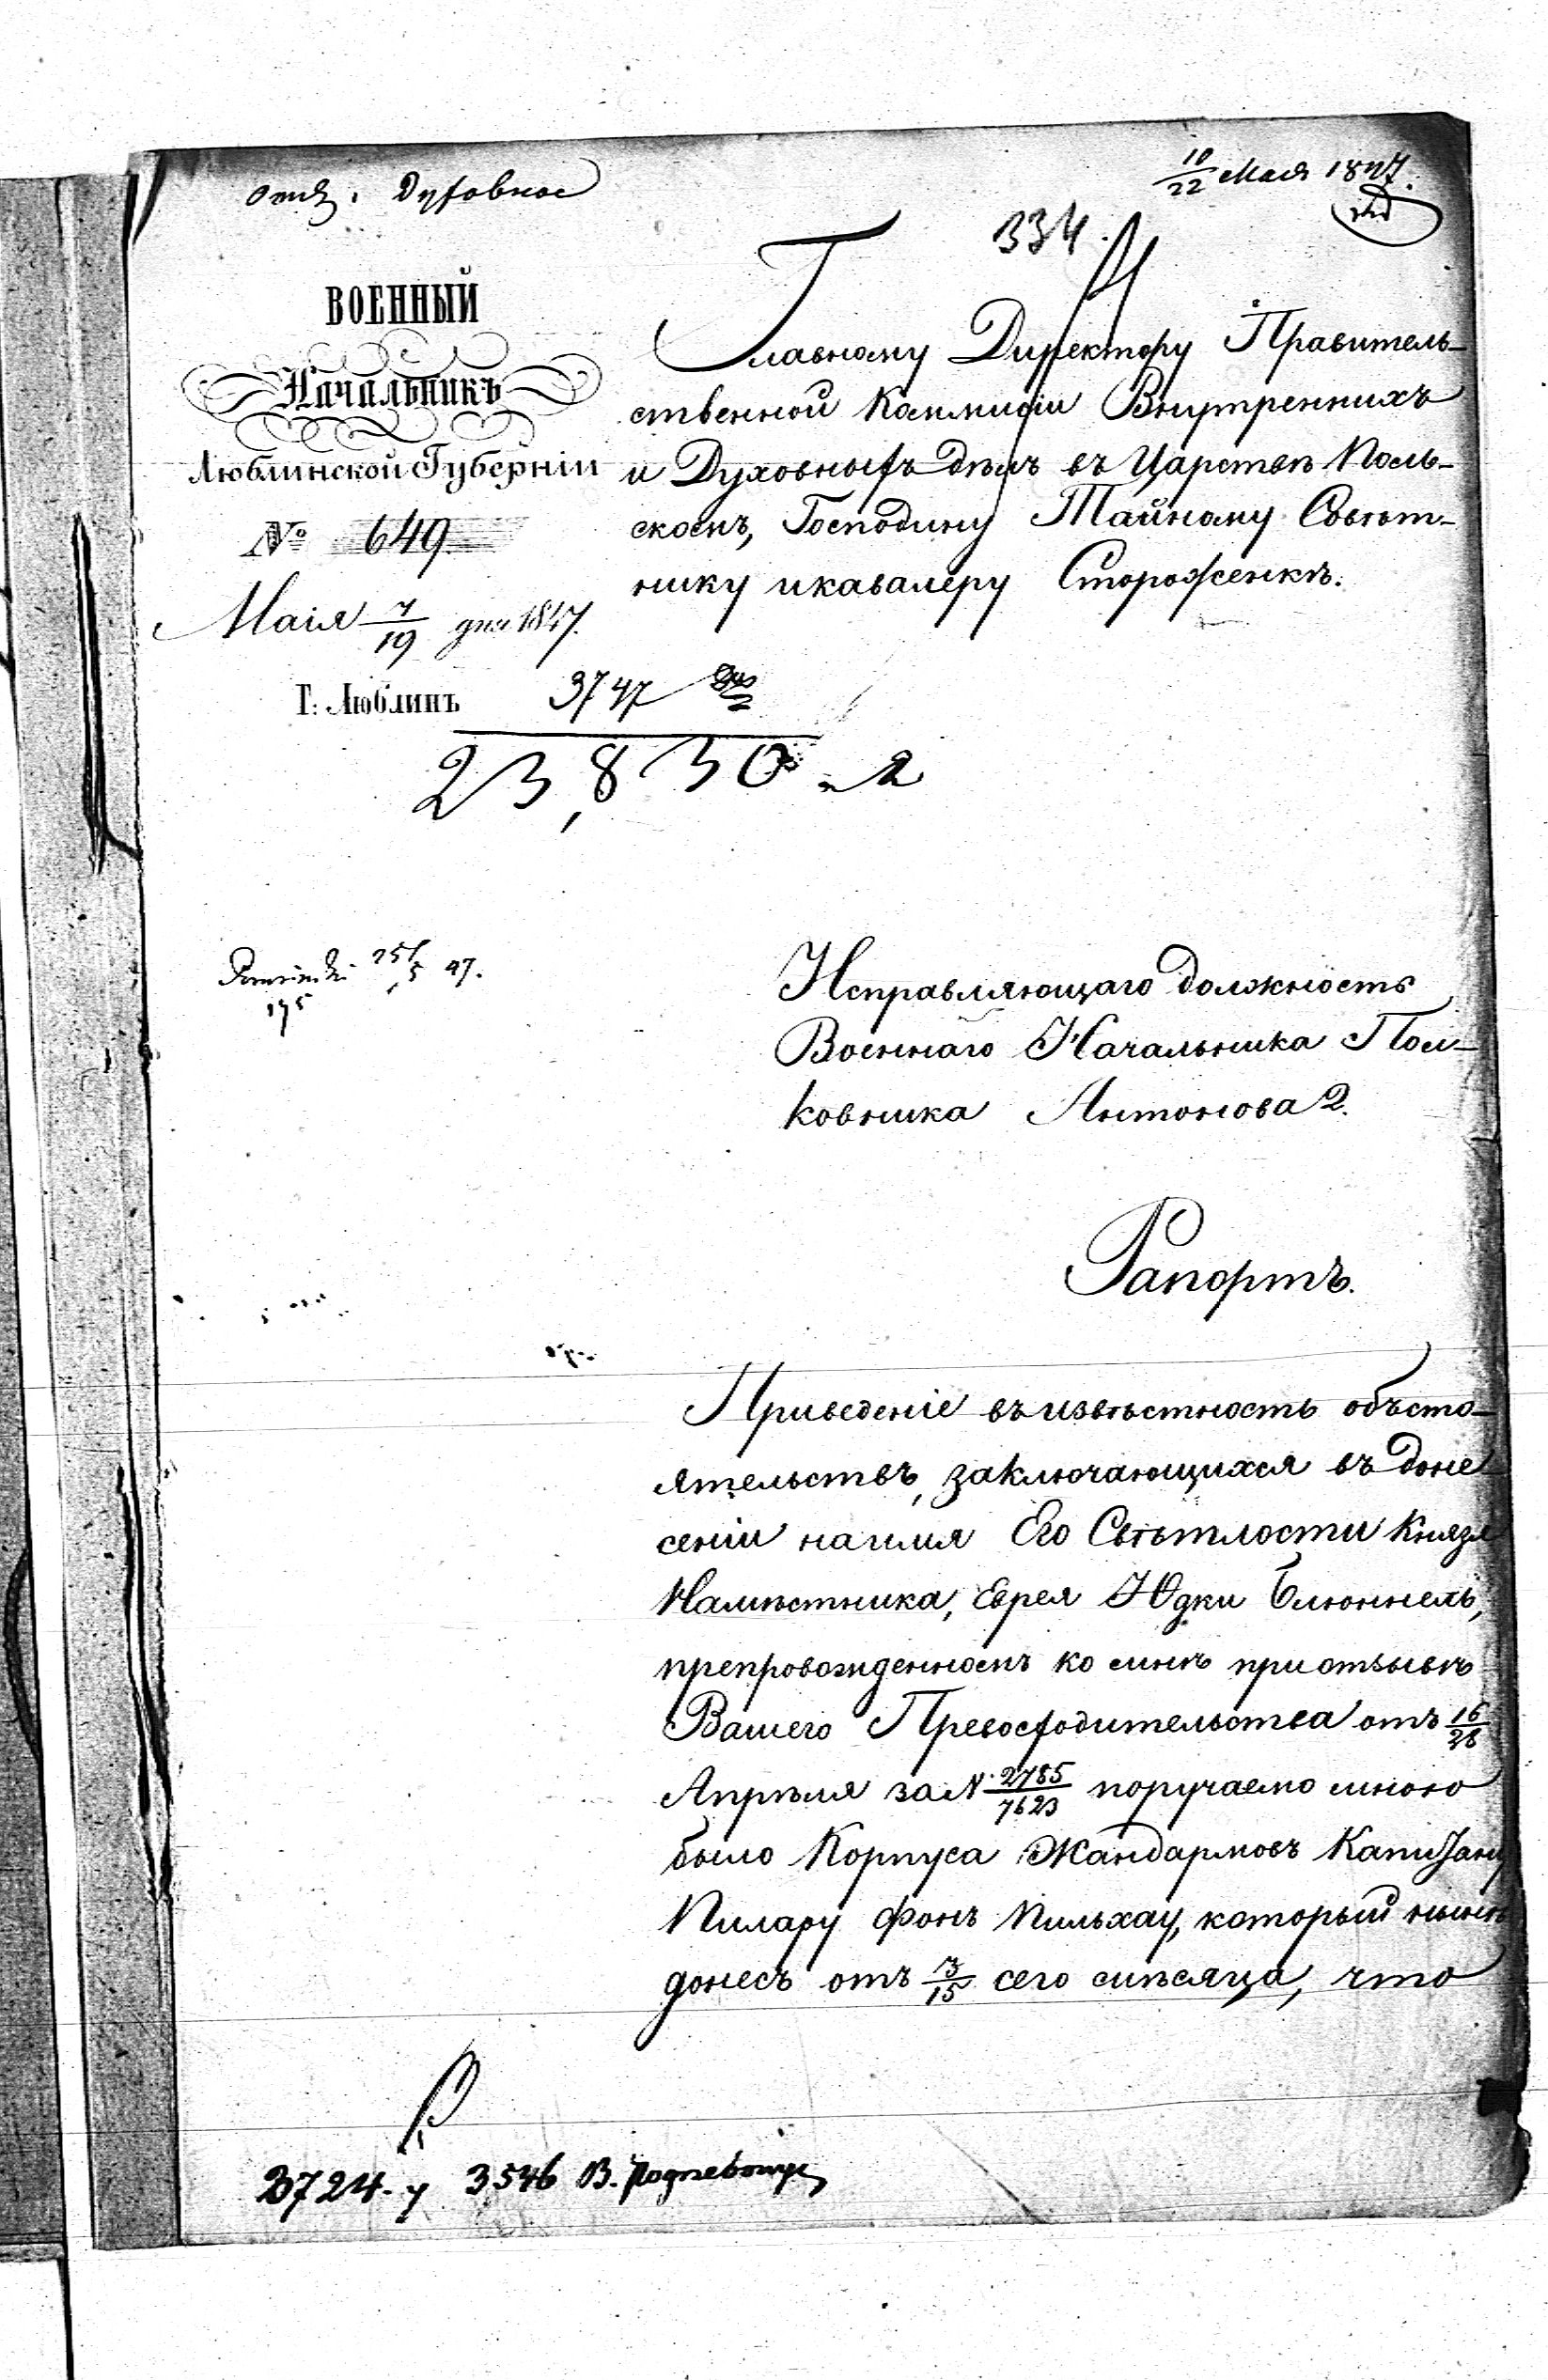 10/22 Мая 1847.
Духовное
334.
ВОЕННЫЙ
Начальникъ
Люблинской Губерніи
№ 649
Маія 7/19 дня 1847.
Г: Люблинъ
3747
23,830
Главному Директору Правитель-
ственной Коммисіи Внутреннихъ
и Духовныхъ дѣлъ въ Царствѣ Поль-
скомъ, Господину Тайному Совѣт-
нику и кавалеру Стороженкѣ.
25/5 47.
195
Исправляющаго должность
Военнаго Начальника Пол-
ковника Антонова 2.
Рапортъ.
Приведеніе въ извѣстность объсто-
ятельствъ, заключающихся въ доне
сеніи на имя Его Свѣтлости Князя
Намѣстника, Еврея Юдки Блюммель,
препровожденномъ ко мнѣ при отзывѣ
Вашего Превосходительства отъ 16/28
Апрѣля за N. 2785/7623 поручаемо мною
было Корпуса Жандармовъ Капитану
Пилару фонъ Пильхау, который нынѣ
донесъ отъ 3/15 сего мѣсяца, что
3724- у 3546 В.